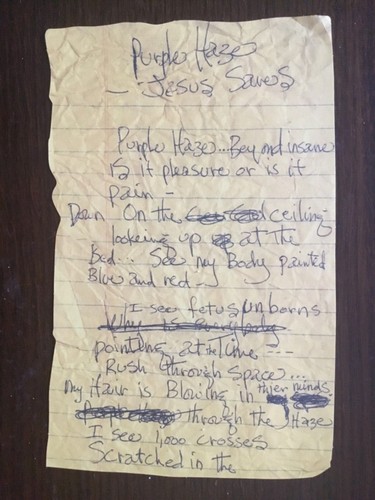 Purple Haze
— Jesus Saves
Purple Haze... Beyond insane
Is it pleasure or is it
pain -
Down On the ceiling
lookeing up at the
Bed... See my Body painted
Blue and red -
I see fetus unborns
Why is everybody
pointing at the Time ---
Rush through space...
my Hair is Blowing in thier minds
through the Haze
I see 1,000 crosses
Scratched in the